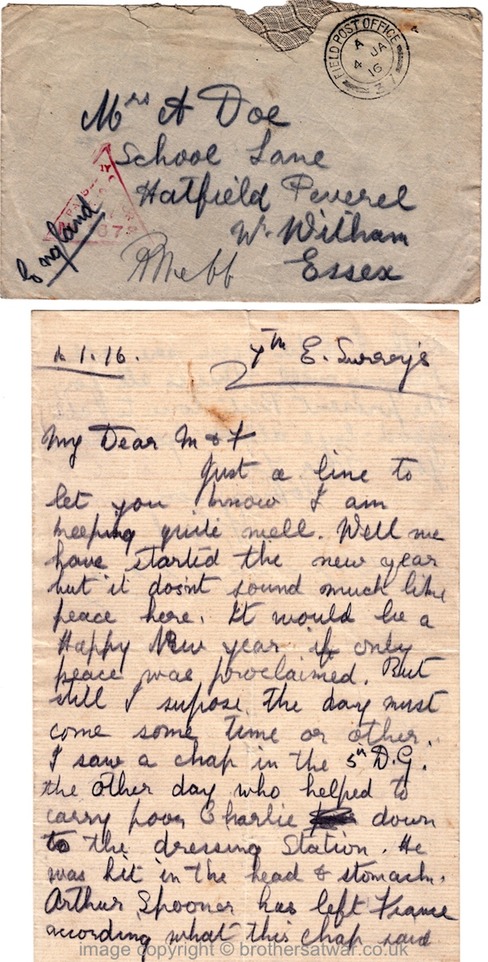 FIELD POST OFFICE
A
4 JA
16
37
Mrs A Doe
School Lane
Hatfield Peverel
Nr Witham
Essex
England
1.1.16.
7th E. Surrey's
My Dear M & F
Just a line to
let you know I am
keeping quite well. Well we
have started the new year
but it dosn't sound much like
peace here. It would be a
Happy New year if only
peace was proclaimed. But
still I supose the day must
come some time or other.
I saw a chap in the 5th D.G.
the other day who helped to
carry poor Charlie down
to the dressing Station. He
was hit in the head & stomach.
Arthur Spooner has left France
acording what this chap said
image copyright © brothersatwar.co.uk